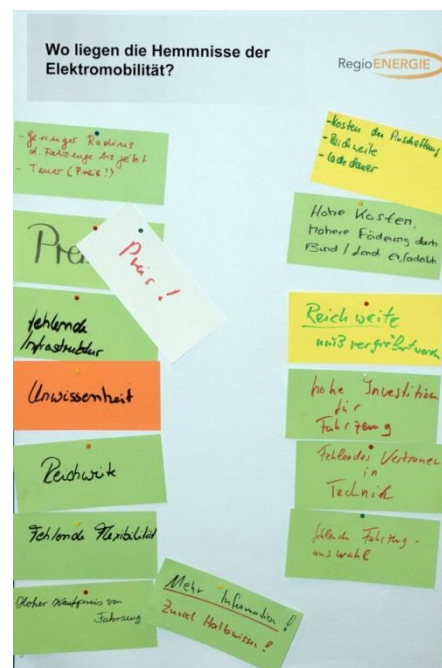 Wo liegen die Hemmnisse der
Elektromobilität?
RegioENERGIE
- Geringer Radius
d. Fahrzeuge bis jetzt
- Teuer (Preis!)
Preis!
fehlende
Infrastruktur
Unwissenheit
Reichweite
Fehlende Flexibilität
Hoher Kaufpreis von
Fahrzeug
Mehr Information!
Zuviel Halbwissen!
- Kosten der Anschaffung
- Reichweite
- Ladedauer
Hohe Kosten,
höhere Föderung durch
Bund / Land erforderlich
Reichweite
muß vergrößert werden
hohe Investition
für
Fahrzeug
Fehlendes Vertrauen
in
Technik
fehlende Fahrzeug-
auswahl